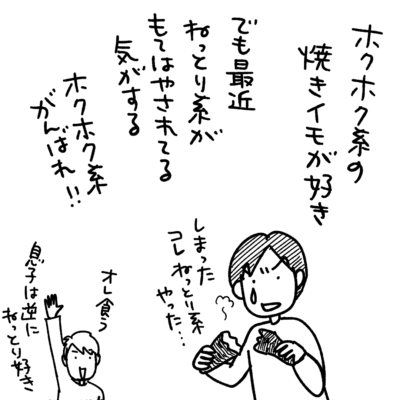 ホクホク系の
焼きイモが好き
でも最近
ねっとり系が
もてはやされてる
気がする
ホクホク系
がんばれ!!
しまった
コレねっとり系
やった…
オレ食う
息子は逆に
ねっとり好き